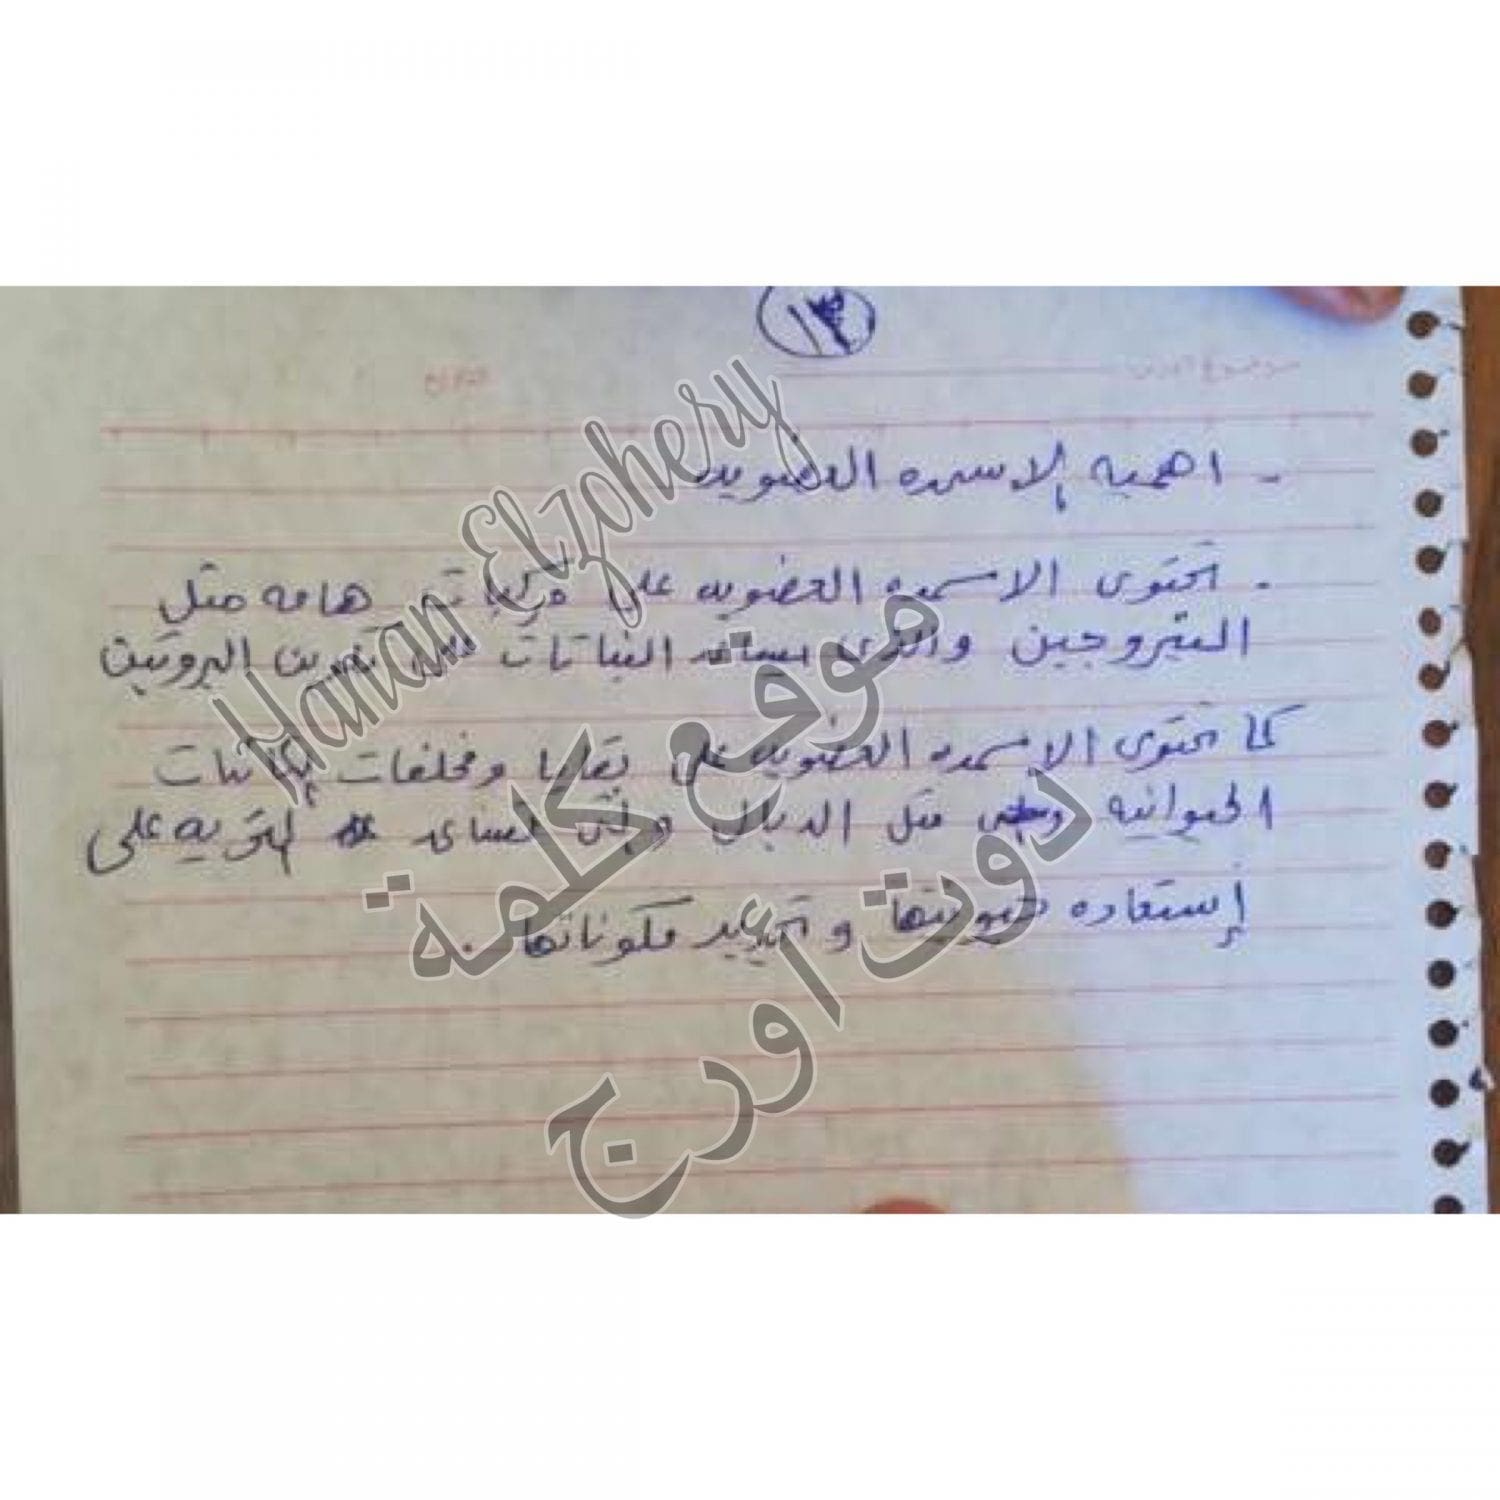 ١٣
- اهميه الاسمده العضويه
. تحتوى الاسمده العضويه على مركبات هامه مثل
النيتروجين والذى يساعد النباتات على تكوين البروتين
كما تحتوى الاسمده العضويه على بقايا ومخلفات الكائنات
الحيوانيه مثل الدبال والتى تساعد التربه على
إستعاده حيويتها وتجديد مكوناتها .
Hanan Elzohery
موقع كلمة
دوت أورج